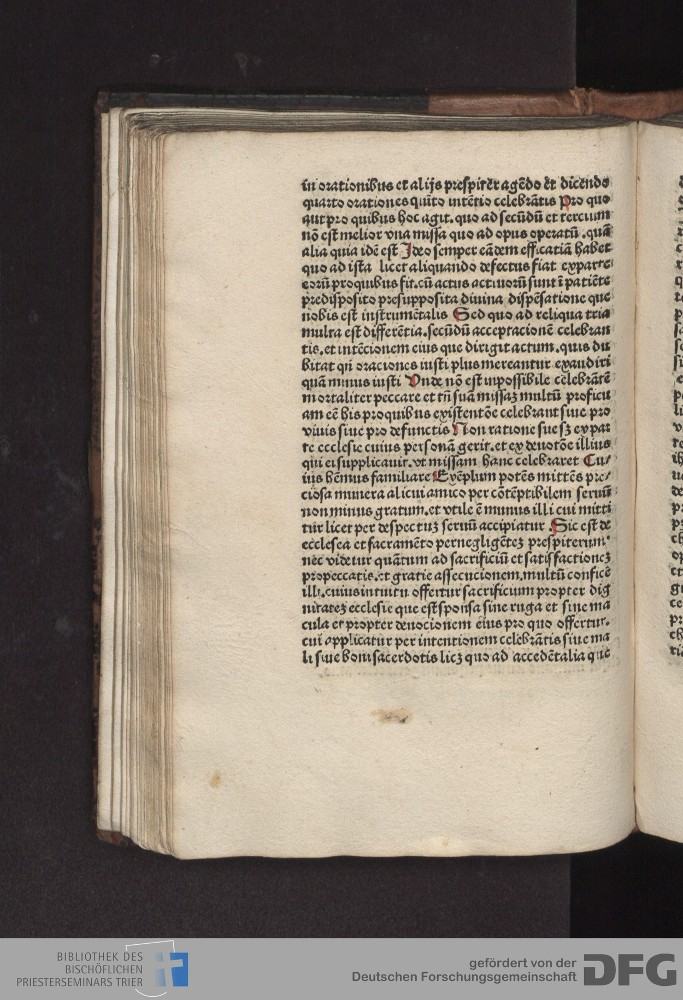 in orationibus et alijs prespiter agēdo et dicendo
quarto orationes quito intētio celebrātis Pro quo
aut pro quibus hoc agit. quo ad secūdū et tercium
nō est melior vna missa quo ad opus operatū . quā
alia quia idē est Ideo semper eādem efficatiā habet
quo ad ista licet aliquando defectus fiat exparte
eorū proquibus fit. cū actus actiuorū sunt ī patiēte
predisposito presupposita diuina dispēsatione que
nobis est instrumētalis Sed quo ad reliqua tria
multa est differētia. secūdū acceptacionē celebran
tis. et intēcionem eius que dirigit actum. quis du
bitat qn̄ oraciones iusti plus mereantur exaudiri
quā minus iusti Vnde nō est inpossibile celebrātē
mortaliter peccare et tn̄ suā missaꝫ multū proficu
am eē his proquibus existentōe celebrant siue pro
viuis siue pro defunctis Non ratione sue sꝫ ex par
te ecclesie cuius personā gerit. et ex deuotōe illius
qui ei supplicauit. vt missam hanc celebraret Cu/
ius hēmus familiare Exēplum potēs mittēs pre/
ciosa munera alicui amico per cōtēptibilem seruū
non minus gratum. et vtile ē munus illi cui mitti
tur licet per despectuꝫ seruū accipiatur Sic est de
ecclesea et sacramēto per negligēteꝫ prespiterum
nec videtur quātum ad sacrificiū et satisfactioneꝫ
propeccatis. et gratie assecucionem. multū conficē
illi. cuius intuitu offertur sacrificum propter dig
nitateꝫ ecclesie que est sponsa sine ruga et sine ma
cula et propter deuocionem eius pro quo offertur.
cui applicatur per intentionem celebrātis siue ma
li siue boni sacerdotis licꝫ quo ad accedētalia que
BIBLIOTHEK DES
BISCHÖFLICHEN
PRIESTERSEMINARS TRIER
gefördert von der
Deutschen Forschungsgemeinschaft
DFG